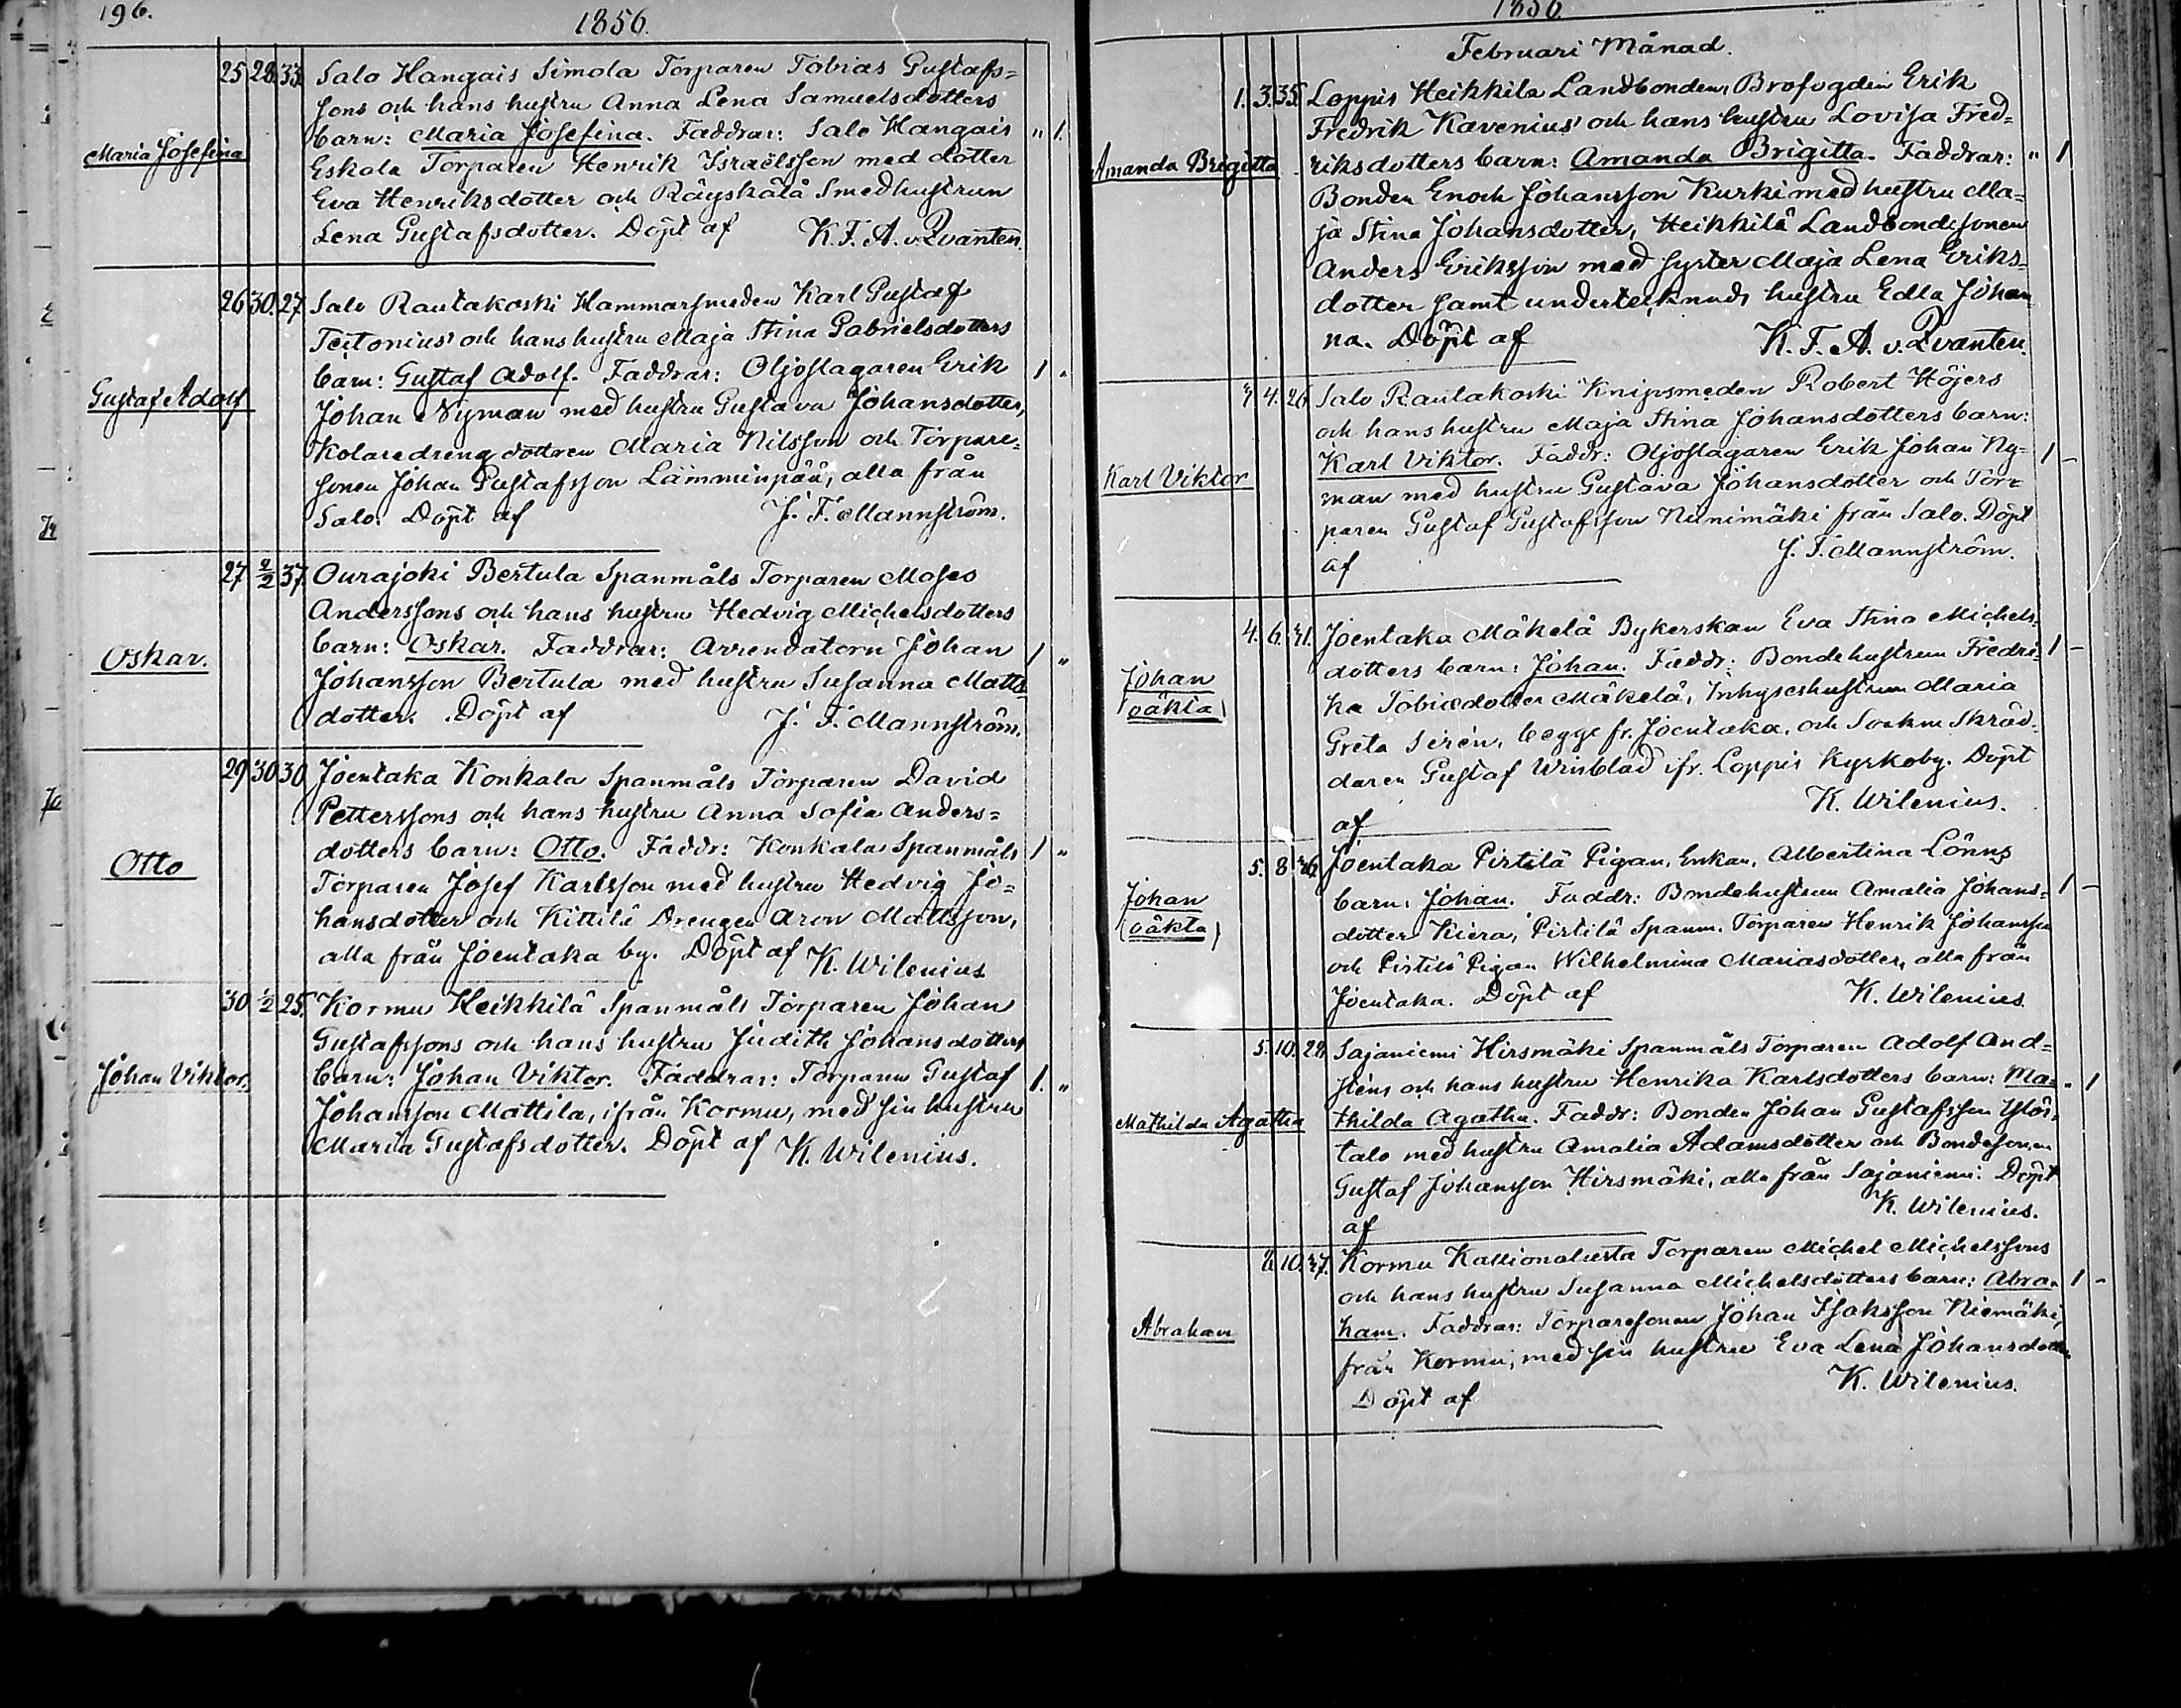 196.
1856.
25 28. 33. Salo Hangais Simola Torparen Tobias Gustafs=
sons och hans hustru Anna Lena Samuelsdotters
barn: Maria Josefina. Faddrar: Salo Hangais " 1.
Maria Josefina
Eskola Torparen Henrik Israëlsson med dotter
Eva Henriksdotter och Räyskälä Smedhustrun
Lena Gustafsdotter. Döpt af K. F. A. v. Qvanten.
26 30. 27. Salo Rautakoski Hammarsmeden Karl Gustaf
Teitonius' och hans hustru Maja Stina Gabrielsdotters
barn: Gustaf Adolf. Faddrar: Oljoslagaren Erik 1 "
Gustaf Adolf
Johan Nyman med hustru Gustava Johansdotter,
Kolaredreng dottren Maria Nilsson och Torpare=
sonen Johan Gustafsson Lämminpää, alla från
Salo. Döpt af J. F. Mannström.
27 2/2 37. Ourajoki Bertula Spanmåls Torparen Moses
Anderssons och hans hustru Hedvig Michelsdotters
barn: Oskar. Faddrar: Arrendatorn Johan 1 "
Oskar.
Johansson Bertula med hustru Susanna Matts
dotter. Döpt af J. F. Mannström.
29 30 30. Joentaka Konkala Spanmåls Torparen David
Petterssons och hans hustru Anna Sofia Anders=
dotters barn: Otto. Faddr: Konkala Spanmåls 1 "
Otto
Torparen Josef Karlsson med hustru Hedvig Jo=
hansdotter och Kittilä Drengen Aron Mattsson,
alla från Joentaka by. Döpt af K. Wilenius
30 1/2 25. Kormu Heikkilä Spanmåls Torparen Johan
Gustafssons och hans hustru Judith Johansdotters
barn: Johan Viktor. Faddrar: Torparen Gustaf 1. "
Johan Viktor.
Johansson Mattila, ifrån Kormu, med sin hustru
Maria Gustafsdotter. Döpt af K. Wilenius.
1856.
Februari Månad.
1. 3. 35. Loppis Heikkilä Landbonden, Brofogden Erik
Fredrik Kavenius' och hans hustru Lovisa Fred=
riksdotters barn: Amanda Brigitta. Faddrar: " 1
Amanda Brigitta
Bonden Enoch Johansson Kurki med hustru Ma=
ja Stina Johansdotter, Heikkilä Landbondesonen
Anders Eriksson med syster Maja Lena Eriks=
dotter samt undertecknads hustru Edla Johan
na. Döpt af K. F. A. v. Qvanten.
4. 26. Salo Rautakoski Knipsmeden Robert Höjers
och hans hustru Maja Stina Johansdotters barn:
Karl Viktor. Faddr: Oljoslagaren Erik Johan Ny= 1 -
Karl Viktor
man med hustru Gustava Johansdotter och Tor=
paren Gustaf Gustafsson Niinimäki från Salo. Döpt
af J. F. Mannström.
4. 6. 41. Joentaka Mäkelä Bykerskan Eva Stina Michels=
dotters barn: Johan. Faddr: Bondehustrun Fredri= 1 -
Johan
(oäkta)
ka Tobiædotter Mäkelä, Inhyseshustrun Maria
Greta Sirén, begge fr. Joentaka, och Sockne Skräd=
daren Gustaf Winblad ifr. Loppis Kyrkoby. Döpt
af K. Wilenius.
5. 8 Joentaka Pirtilä Pigan, Enkan, Albertina Lönns
barn: Johan. Faddr: Bondehustrun Amalia Johans= 1 -
Johan
(oäkta)
dotter Kiera, Pirtilä Spanm. Torparen Henrik Johansson
och Pirtilä Pigan Wilhelmina Mariasdotter, alla från
Joentaka. Döpt af K. Wilenius.
5. 10. 28. Sajaniemi Hirsmäki Spanmåls Torparen Adolf And=
sténs och hans hustru Henrika Karlsdotters barn: Ma= " 1
Mathilda Agatha
thilda Agatha. Faddr: Bonden Johan Gustafsson Ylös=
talo med hustru Amalia Adamsdotter och Bondesonen
Gustaf Johansson Hirsmäki, alla från Sajaniemi. Döpt
af K. Wilenius.
10. Kormu Kallionalusta Torparen Michel Michelssons
och hans hustru Susanna Michelsdotters barn: Abra= 1 -
Abraham
ham. Faddrar: Torparesonen Johan Isaksson Niemäki,
från Kormu, med sin hustru Eva Lena Johansdotter.
Döpt af K. Wilenius.